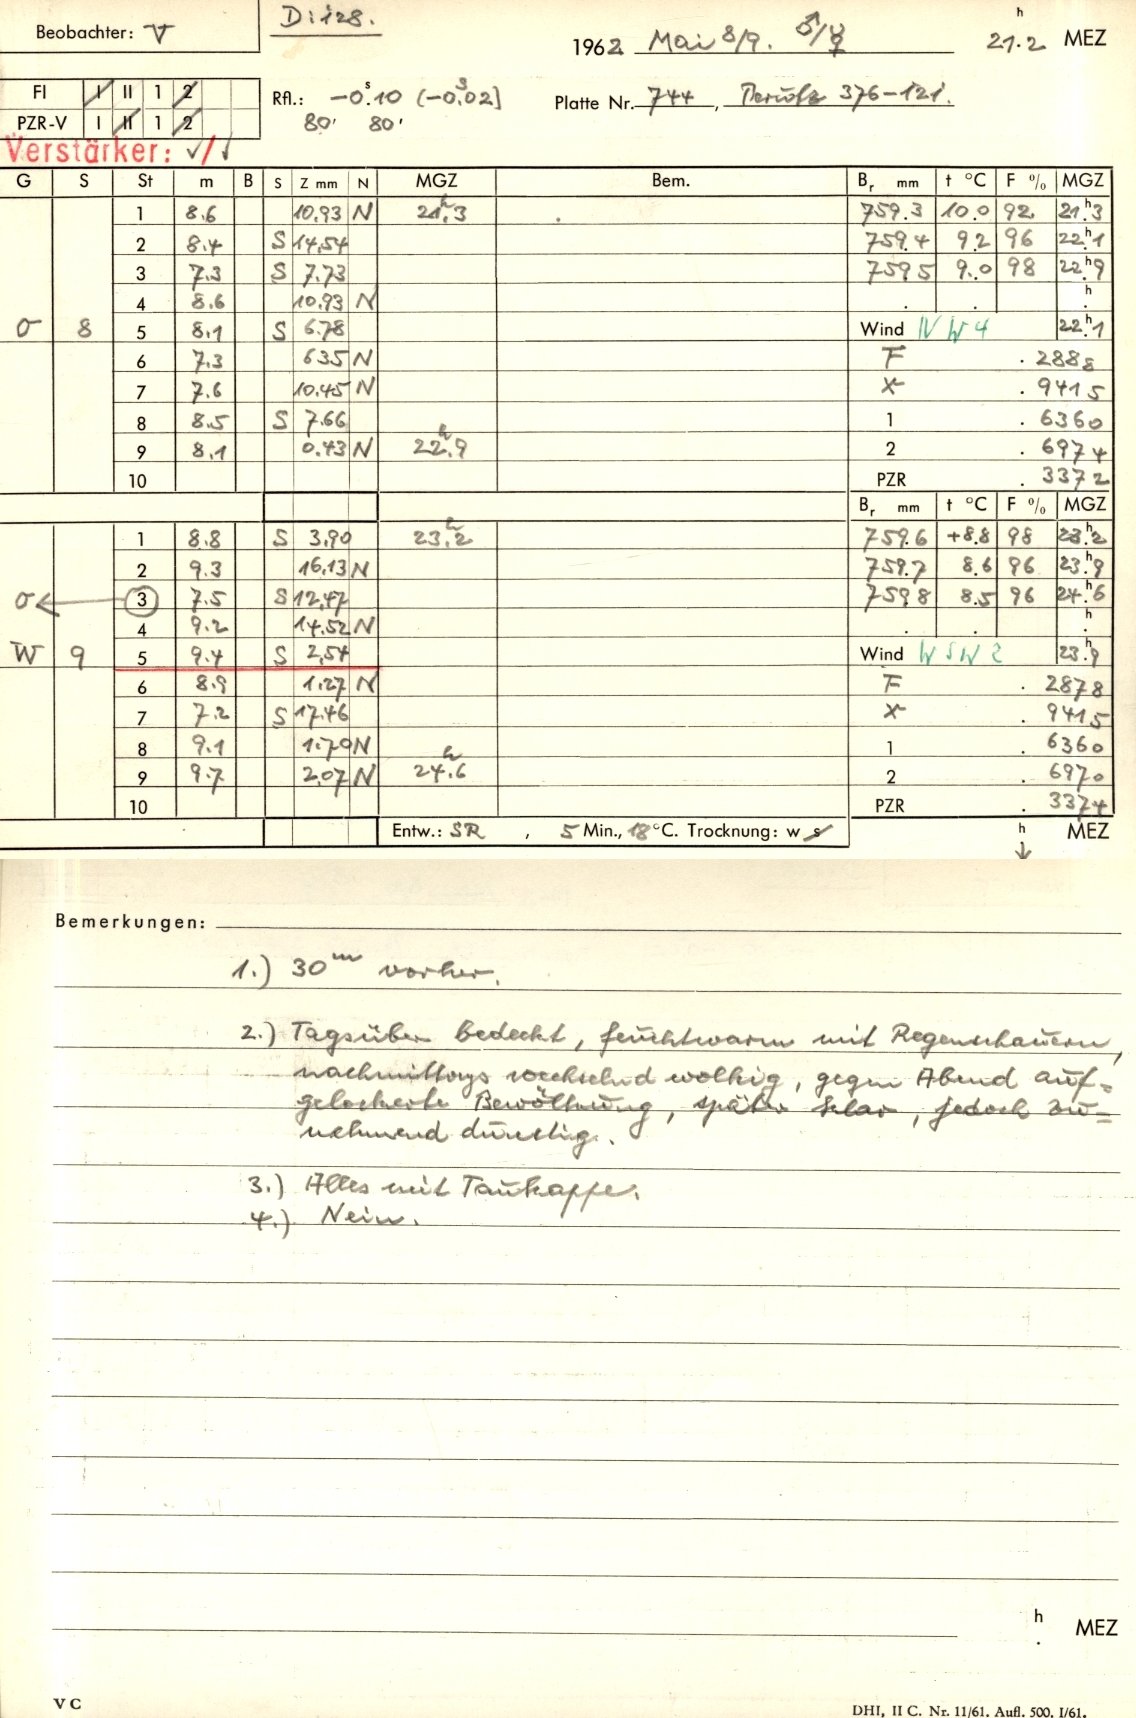 Beobachter: V
D: 128.
1962 Mai 8/9. ♂/☿ 21.2 h MEZ
FI I II 1 2
PZR-V I II 1 2
Rfl.: -0ˢ.10 (-0ˢ.02)
80' 80'
Platte Nr. 744, Perutz 376-121.
Verstärker: √/√
G S St m B S Z mm N MGZ Bem. Bᵣ mm t °C F % MGZ
1 8.6 10.93 N 21ʰ.3 759.3 10.0 92 21ʰ3
2 8.4 S 14.54 759.4 9.2 96 22ʰ1
3 7.3 S 7.73 759.5 9.0 98 22ʰ9
4 8.6 10.93 N . . h .
σ 8 5 8.1 S 6.78 Wind NW 4 22ʰ1
6 7.3 6.35 N F . 2888
7 7.6 10.45 N X . 9415
8 8.5 S 7.66 1 . 6360
9 8.1 0.43 N 22ʰ.9 2 . 6974
10 PZR . 3372
Bᵣ mm t °C F % MGZ
1 8.8 S 3.90 23ʰ.2 759.6 +8.8 98 23ʰ2
2 9.3 16.13 N 759.7 8.6 96 23ʰ9
σ ← 3 7.5 S 12.47 759.8 8.5 96 24ʰ6
4 9.2 14.52 N . . h .
W 9 5 9.4 S 2.54 Wind WSW 2 23ʰ9
6 8.9 1.27 N F . 2878
7 7.2 S 17.46 X . 9415
8 9.1 1.70 N 1 . 6360
9 9.7 2.07 N 24ʰ.6 2 . 6970
10 PZR . 3374
Entw.: SR , 5 Min., 18 °C. Trocknung: w s h MEZ
↓
Bemerkungen:
1.) 30ᵐ vorher.
2.) Tagsüber bedeckt, feuchtwarm mit Regenschauern,
nachmittags wechselnd wolkig, gegen Abend auf=
gelockerte Bewölkung, später klar, jedoch zu=
nehmend dunstig.
3.) Alles mit Taukappe.
4.) Nein.
h . MEZ
V C
DHI, II C. Nr. 11/61. Aufl. 500. I/61.